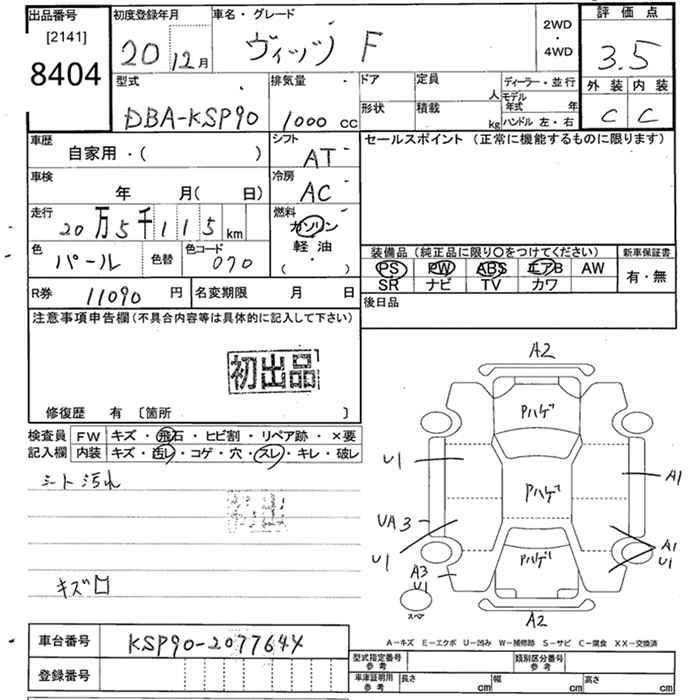 出品番号
[2141]
8404
初度登録年月
20 12月
車名・グレード
ヴィッツ F
2WD
・
4WD
評価点
3.5
外装 内装
C C
型式
DBA-KSP90
排気量
1000 CC
ドア
形状
定員
人
積載
kg
ディーラー・並行
モデル年式 年
ハンドル 左・右
車歴
自家用・( )
シフト
AT
セールスポイント (正常に機能するものに限ります)
車検
年 月( 日)
冷房
AC
走行
20万5千115km
燃料
ガソリン
軽油
( ・ )
色
パール
色替
色コード
070
装備品(純正品に限り○をつけてください)
新車保証書
PS PW ABS エアB AW
有・無
SR ナビ TV カワ
R券 11090 円
名変期限 月 日
後日品
注意事項申告欄(不具合内容等は具体的に記入して下さい)
初出品
修復歴 有 [箇所 ]
検査員 FW キズ・飛石・ヒビ割・リペア跡・×要
記入欄 内装 キズ・汚レ・コゲ・穴・スレ・キレ・破レ
シート汚れ
キズロ
A2
Pハゲ
U1
A1
Pハゲ
UA3
U1
A1
U1
Pハゲ
A3
U1
スペア
A2
A-キズ E-エクボ U-凹み W-補修跡 S-サビ C-腐食 XX-交換済
車台番号 KSP90-2077644
登録番号
型式指定番号
参考
類別区分番号
参考
車庫証明用
参考
長さ cm 幅 cm 高さ cm